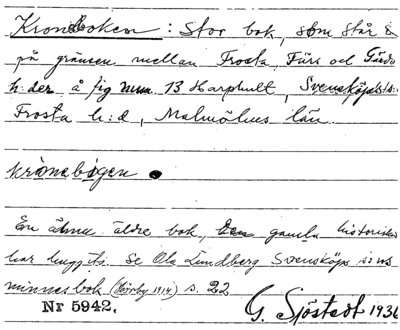 Kronoboken : Stor bok, som står
på gränsen mellan Frosta, Färs och Gärds
h:der, å fig num. 13 Harphult, Svensköps s:n
Frosta h:d, Malmöhus län.
krånebögen
En ännu äldre bok, den gamla historiska
har huggits. Se Ola Lundberg Svensköps s:ns
minnesbok (Hörby 1914) s. 22
Nr 5942. G. Sjöstedt 1936